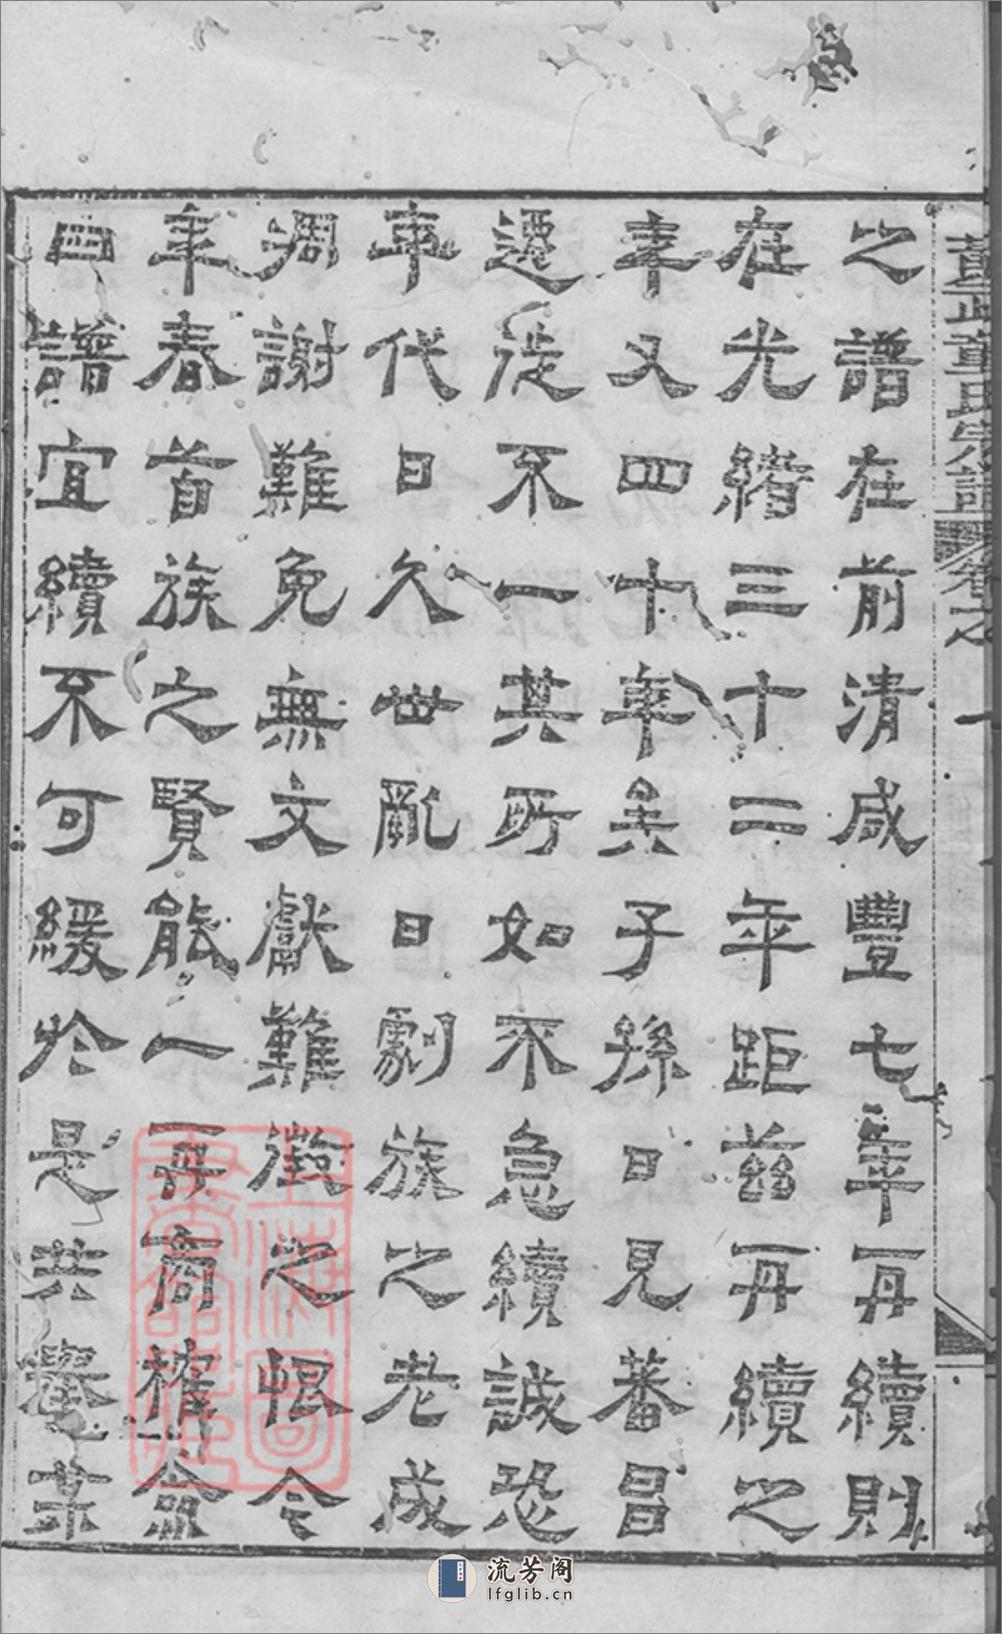 之譜在前清咸豐七年一再續則
在光緒三十二年距茲再續之
年又四十年矣子孫日見蕃昌
遷徙不一其所如不急續誠恐
年代日久世亂日劇族之老成
凋謝難免無文獻難徵之恨今
年春首族之賢能一再商榷僉
曰譜宜續不可緩於是共舉某
章氏宗譜
流芳阁
lfglib.cn